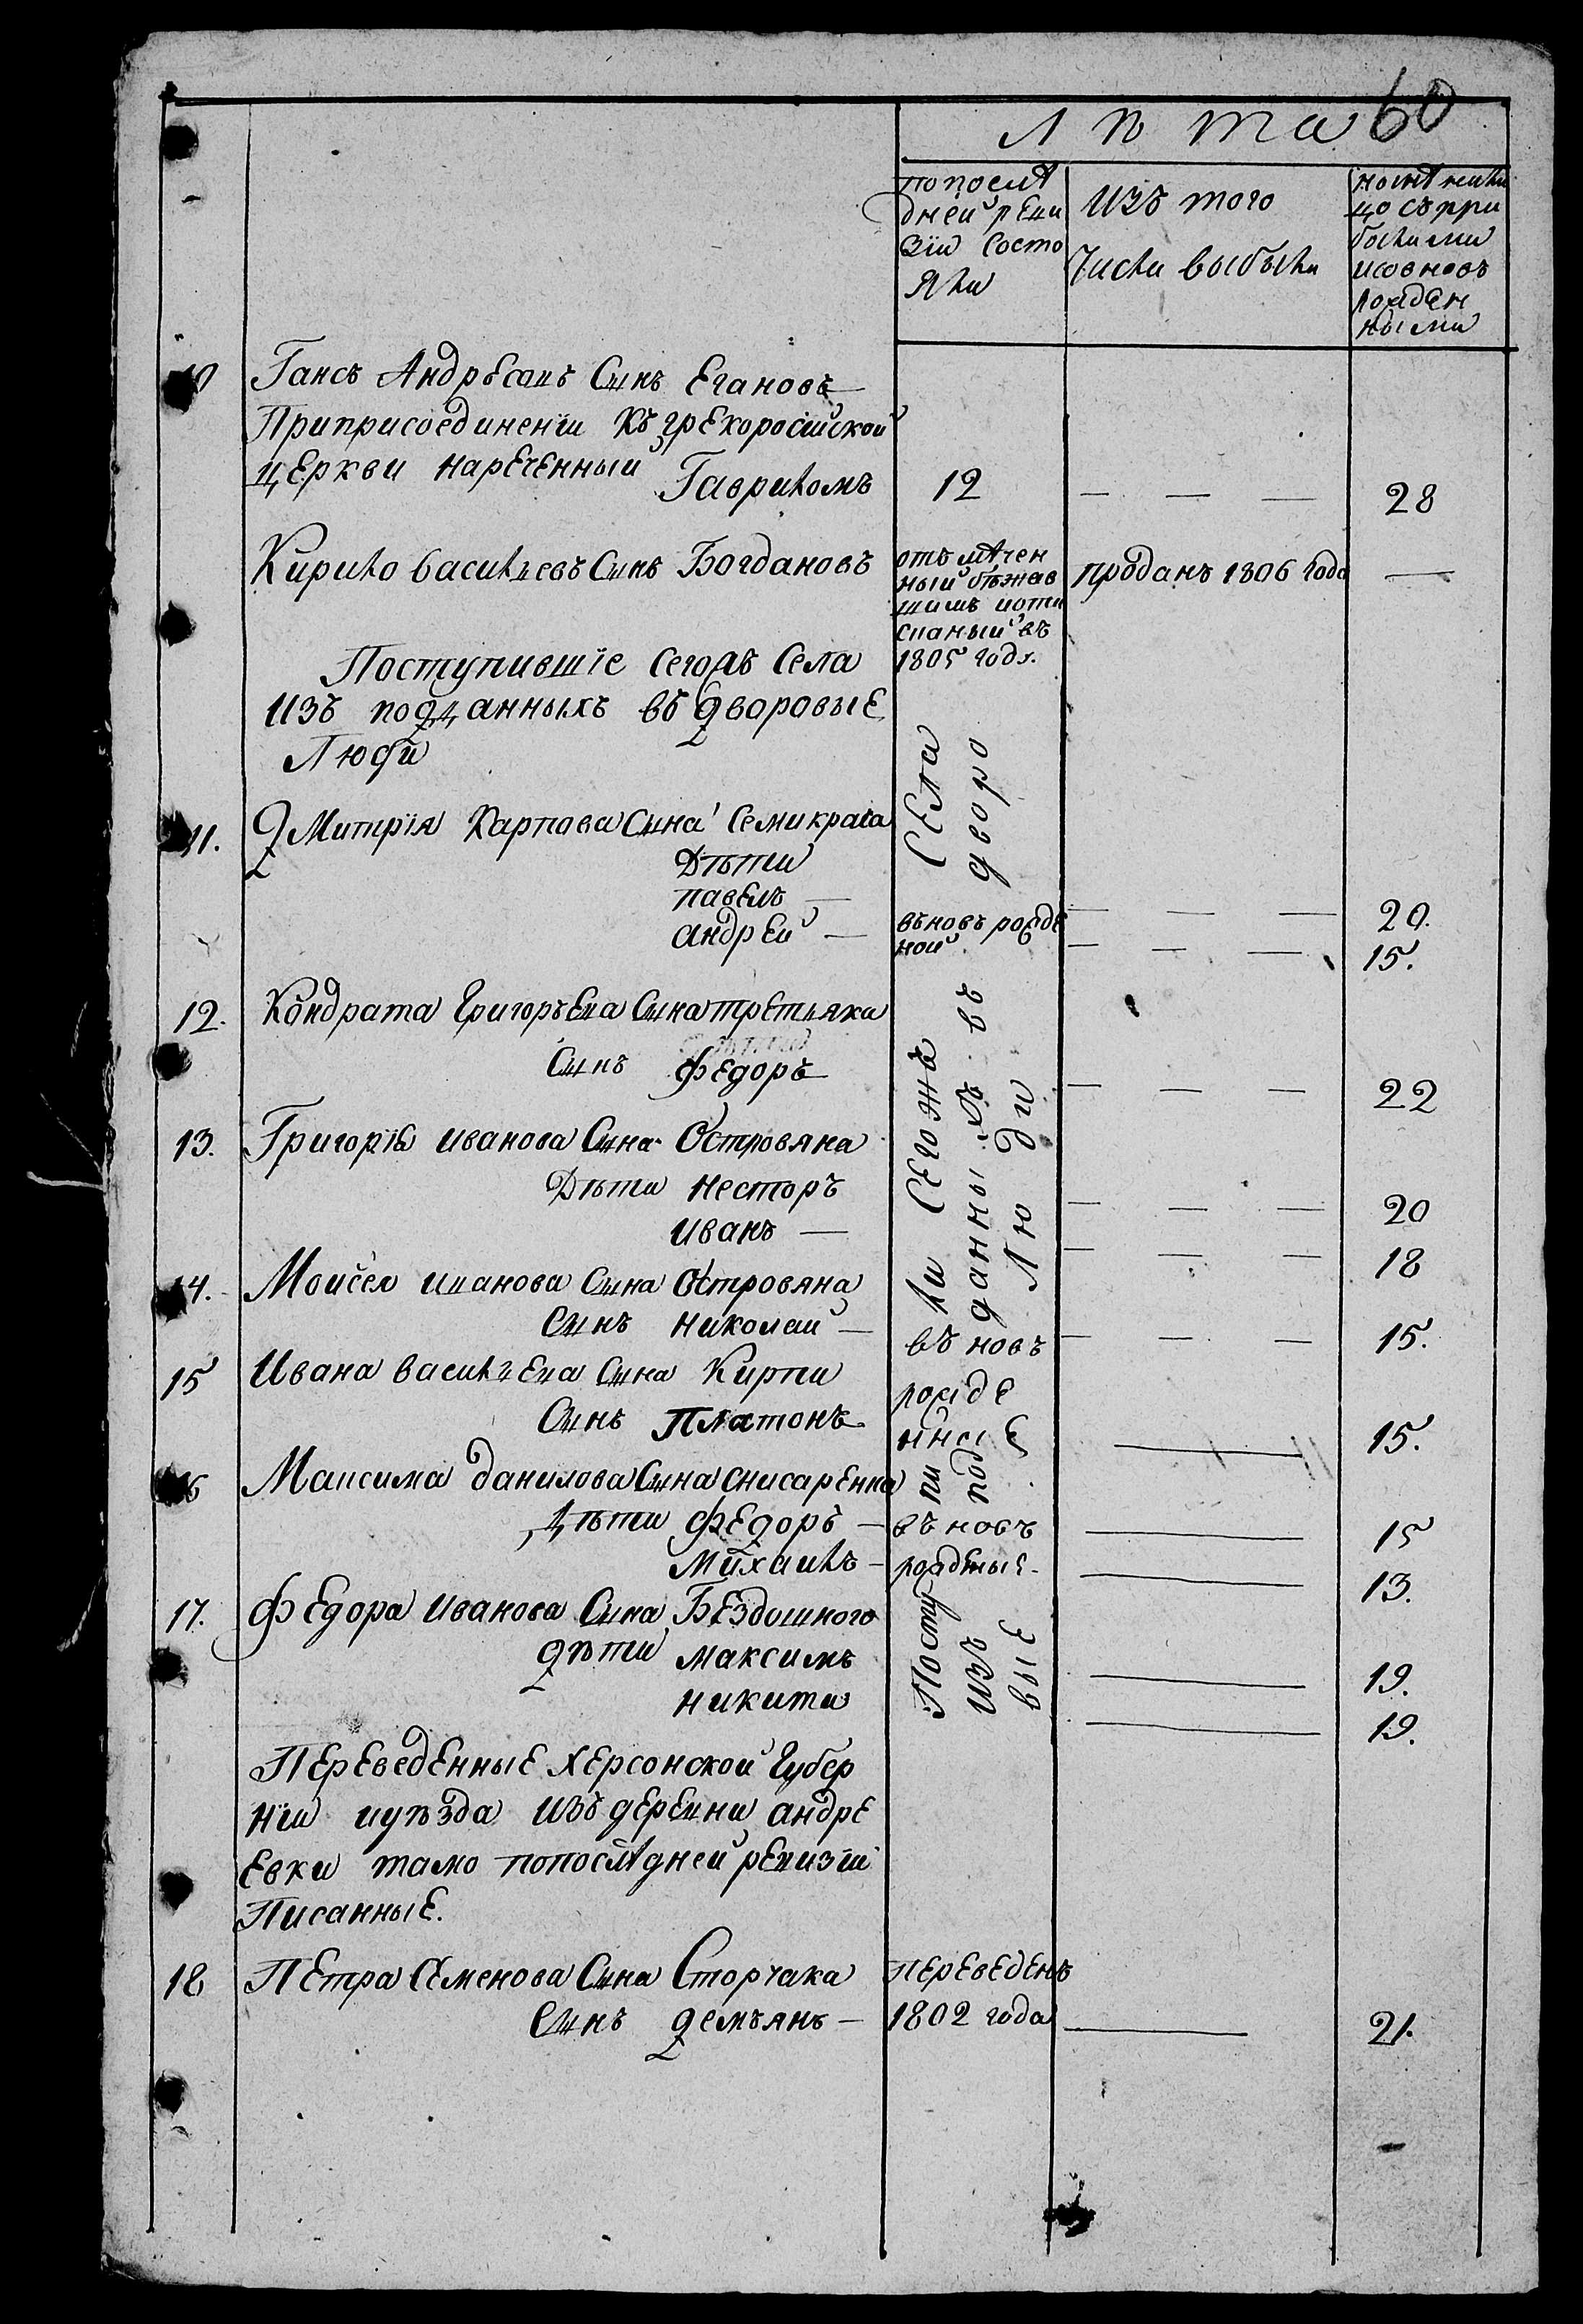 60
Лѣта
по послѣ
дней реви
зіи состо
яли
изъ того
числа выбыли
нынѣ на ли
цо съ при
былыми
и съ вновъ
рожден
ными
10 Гансъ Андреевъ Сынъ Егановъ —
При присоединеніи къ грекоросійской
церкви нареченный Гавриломъ 12 — — — 28
Кирило васильевъ Сынъ Богдановъ
отъмѣчен
ный бѣжав
шимъ и оты
сканый въ
1805 годѣ.
проданъ 1806 года —
Поступившіе сегожъ села
изъ подданныхъ въ дворовые
Люди
11. Дмитрія Карпова Сына Семикраса
Дѣти
павелъ — — — — 20.
андрей — въновъ рожде
ной — — — 15.
12. Кондрата Григорьева Сына третьяка
Сынъ федоръ — — — 22
13. Григорія иванова Сына Островяна
Дѣти несторъ — — — 20
иванъ — — — — 18
14. Моисея иванова Сына Островяна
Сынъ николай — въ новъ — — — 15.
15 Ивана васильева Сына Кирпи
рожде
Сынъ Платонъ нные — 15.
16 Максима данилова Сына снисаренка
Дѣти федоръ — въ новъ — 15
михаилъ — рожденые. — 13.
17. федора иванова Сына Бездошного
дѣти максимъ — 19.
никита — 19.
Поступили Сегожъ Села
изъ подданныхъ въ дворо
вые Люди
Переведенные херсонской губер
ніи и уѣзда изъ деревни андре
евки тамо по послѣдней ревизіи
Писанные.
18 Петра Семенова Сына Сторчака переведенъ
Сынъ демьянъ — 1802 года — 21.